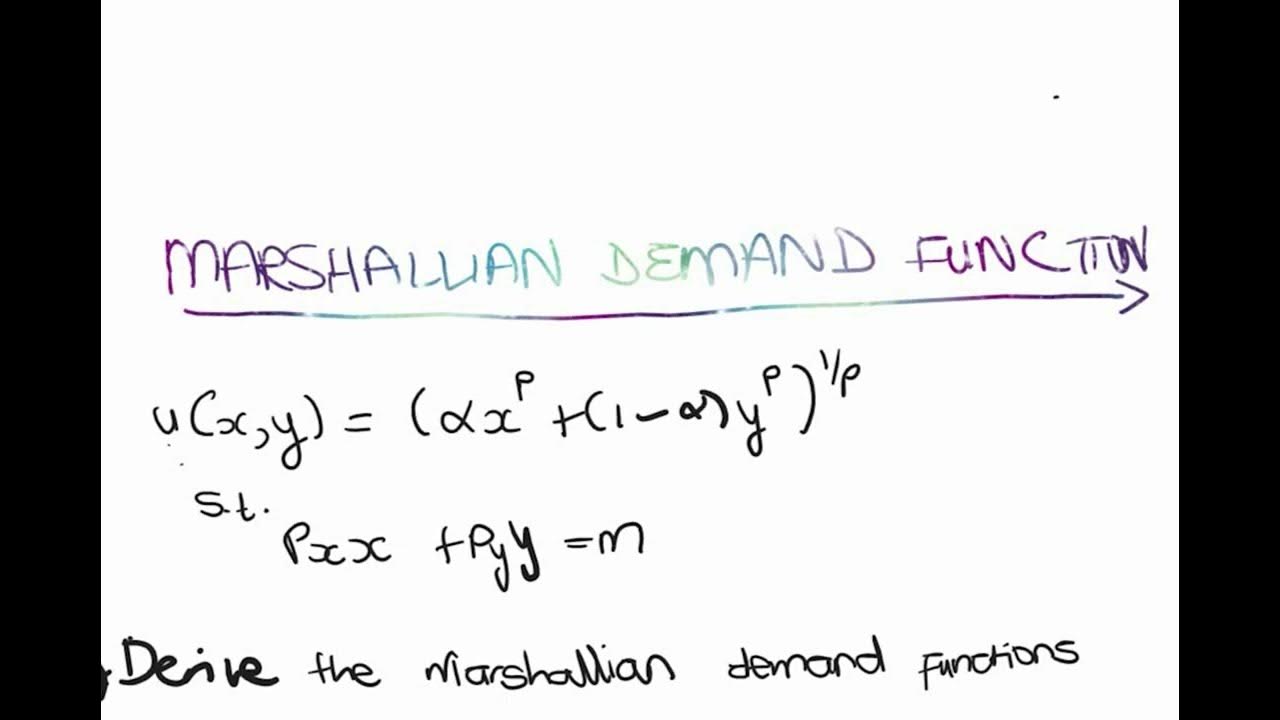 MARSHALLIAN DEMAND FUNCTION
u(x,y) = (αx^ρ + (1-α)y^ρ)^1/ρ
s.t.
Pxx + Pyy = m
Derive the Marshallian demand functions